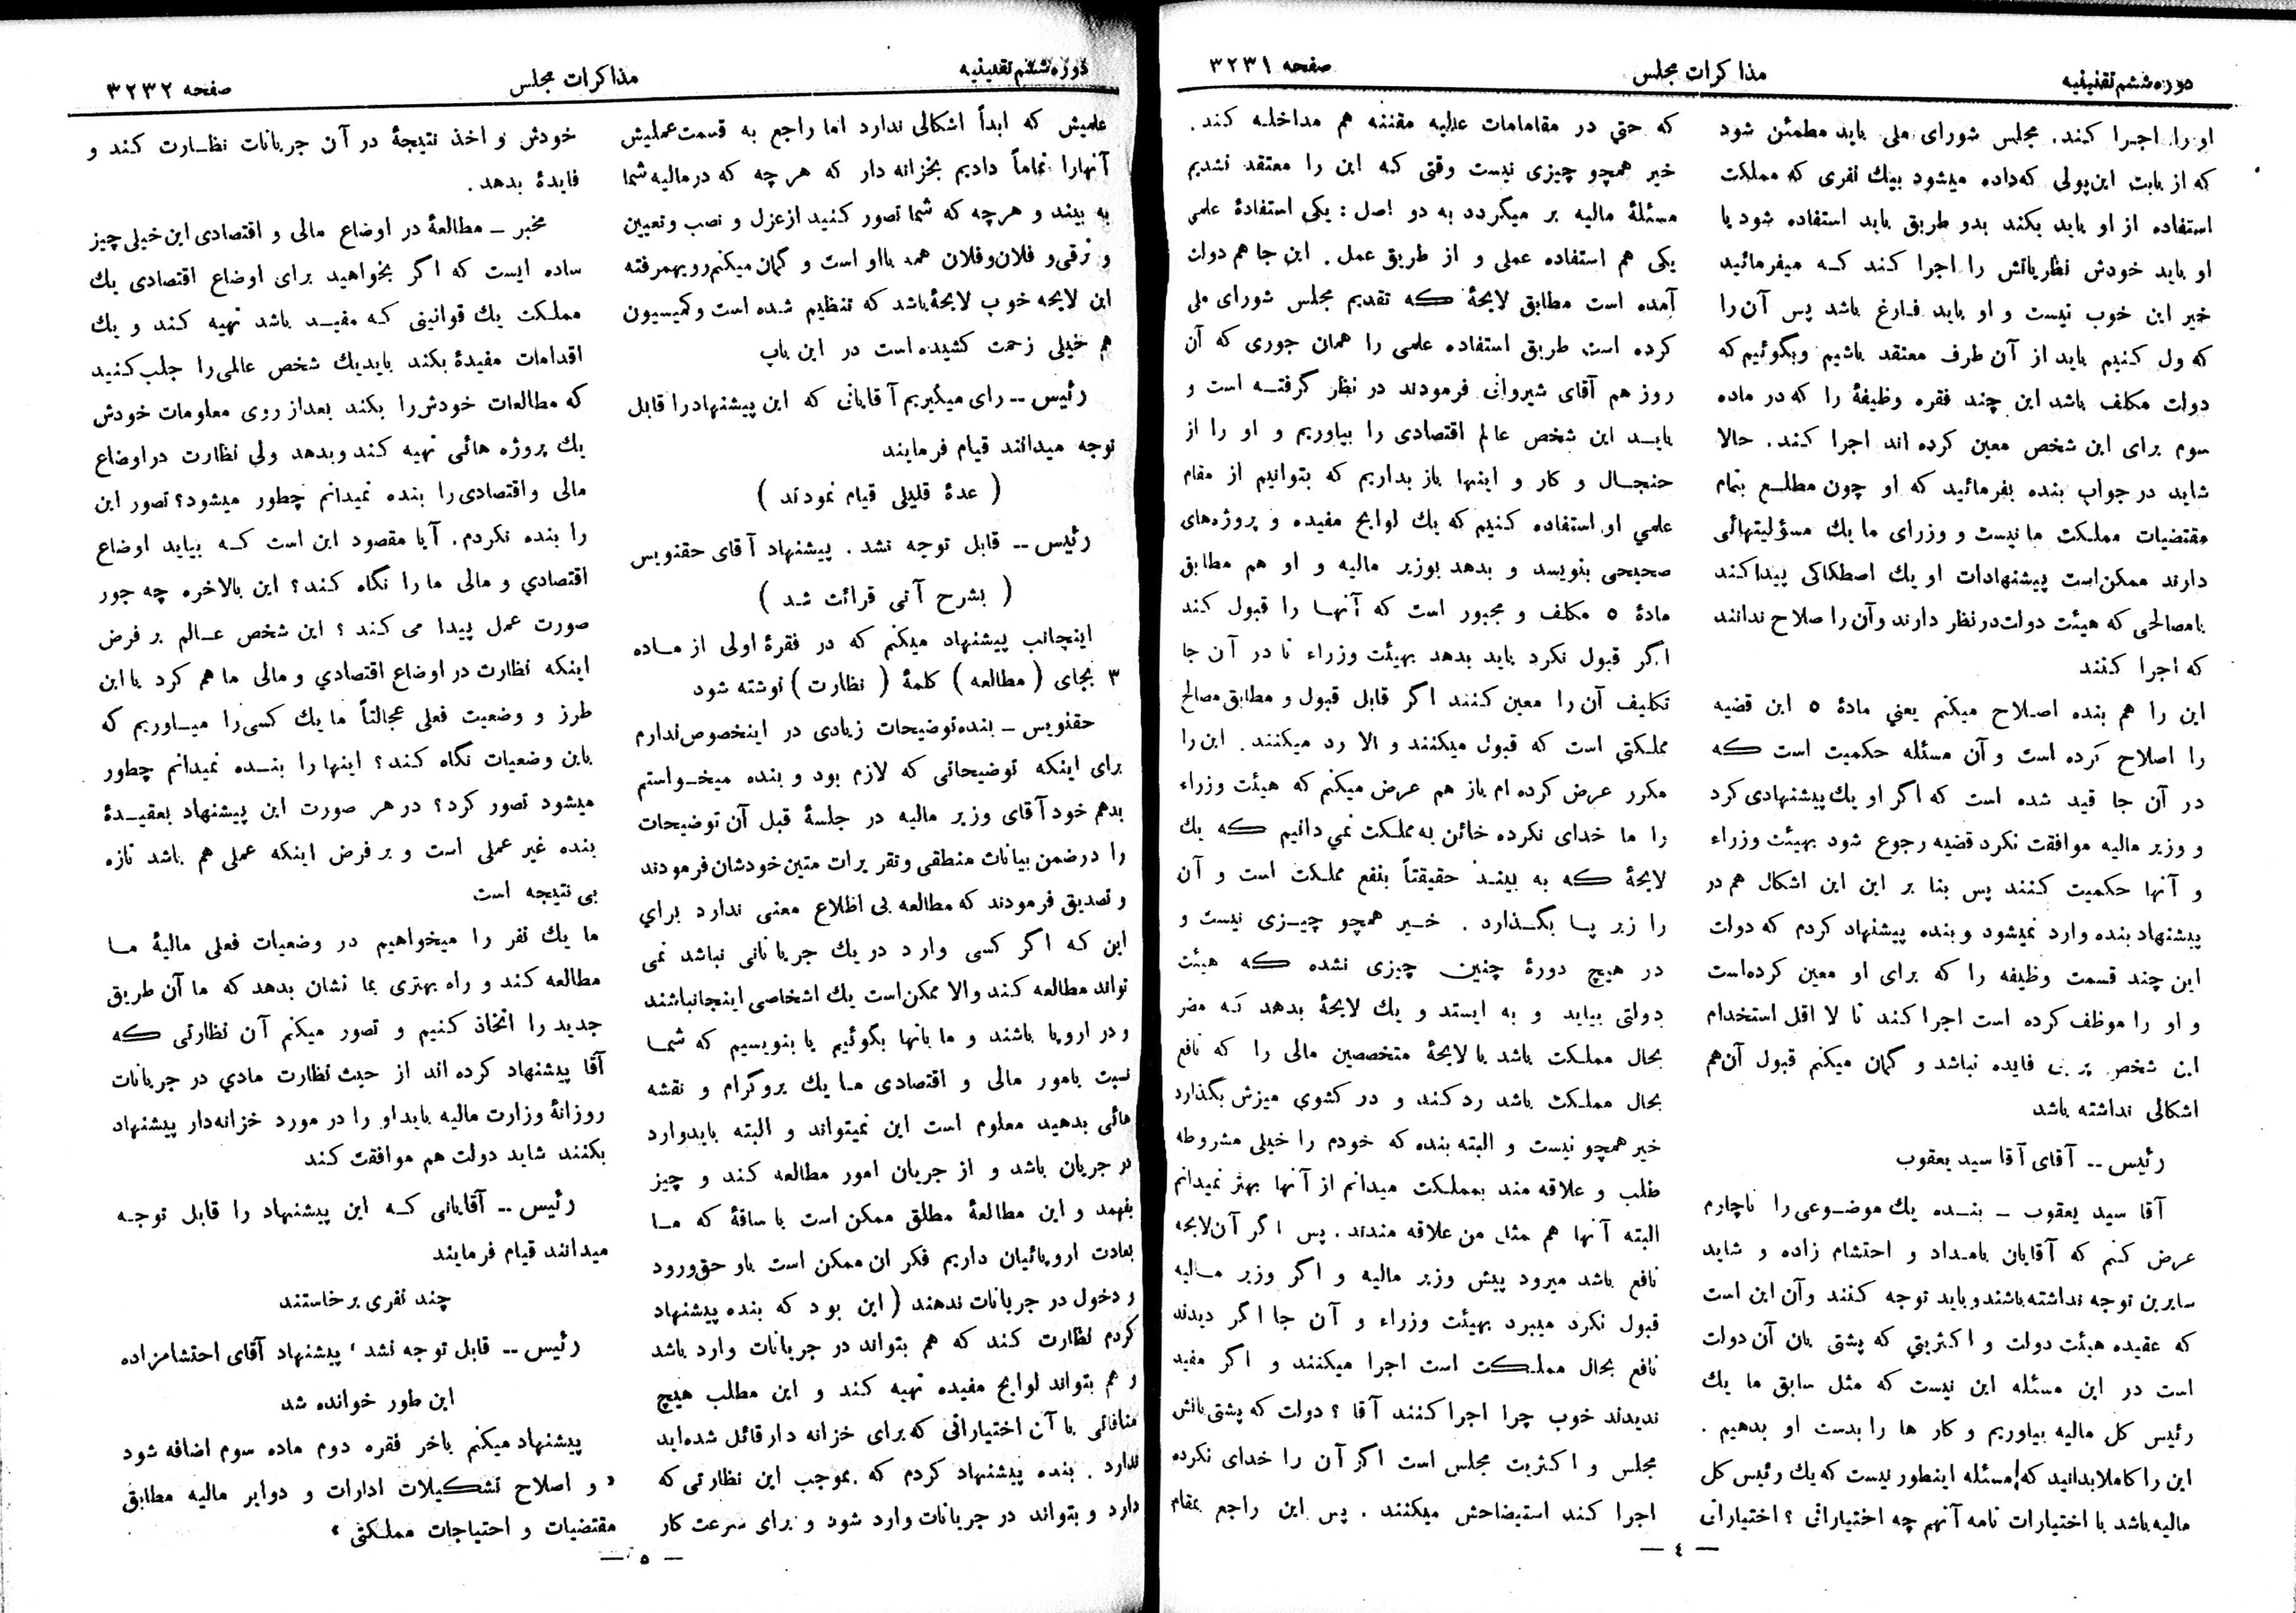 دوره ششم تقنینیه
مذاکرات مجلس
صفحه ۳۲۳۱
او را اجرا کند. مجلس شورای ملی باید مطمئن شود
که از بابت این پولی که داده میشود بیك نفری که مملکت
استفاده از او باید بکند بدو طریق باید استفاده شود یا
او باید خودش نظریاتش را اجرا کند که میفرمائید
خیر این خوب نیست و او باید فارغ باشد پس آن را
که ول کنیم باید از آن طرف معتقد باشیم وبگوئیم که
دولت مکلف باشد این چند فقره وظیفهٔ را که در ماده
سوم برای این شخص معین کرده اند اجرا کند. حالا
شاید در جواب بنده بفرمائید که او چون مطلع بتمام
مقتضیات مملکت ما نیست و وزرای ما یك مسؤلیتهائی
دارند ممکن است پیشنهادات او یك اصطکاکی پیدا کند
بامصالحی که هیئت دولت در نظر دارند وآن را صلاح ندانند
که اجرا کنند
این را هم بنده اصلاح میکنم یعنی مادهٔ ۵ این قضیه
را اصلاح کرده است و آن مسئله حکمیت است که
در آن جا قید شده است که اگر او یك پیشنهادی کرد
و وزیر مالیه موافقت نکرد قضیه رجوع شود بهیئت وزراء
و آنها حکمیت کنند پس بنا بر این این اشکال هم در
پیشنهاد بنده وارد نمیشود و بنده پیشنهاد کردم که دولت
این چند قسمت وظیفه را که برای او معین کرده است
و او را موظف کرده است اجرا کند تا لا اقل استخدام
این شخص پر بی فایده نباشد و گمان میکنم قبول آن هم
اشکالی نداشته باشد
رئیس -- آقای آقا سید یعقوب
آقا سید یعقوب - بنده یك موضوعی را ناچارم
عرض کنم که آقایان بامداد و احتشام زاده و شاید
سایرین توجه نداشته باشند و باید توجه کنند وآن این است
که عقیده هیئت دولت و اکثریتی که پشتی بان آن دولت
است در این مسئله این نیست که مثل سابق ما یك
رئیس کل مالیه بیاوریم و کار ها را بدست او بدهیم .
این را کاملا بدانید که مسئله اینطور نیست که یك رئیس کل
مالیه باشد با اختیارات نامه آنهم چه اختیاراتی ؟ اختیاراتی
که حتي در مقامامات عالیه مقننه هم مداخله کند .
خیر همچو چیزی نیست وقتی که این را معتقد نشدیم
مسئلهٔ مالیه بر میگردد به دو اصل : یکی استفادهٔ علمی
یکی هم استفاده عملی و از طریق عمل . این جا هم دولت
آمده است مطابق لایحهٔ که تقدیم مجلس شورای ملی
کرده است طریق استفاده علمی را همان جوری که آن
روز هم آقای شیروانی فرمودند در نظر گرفته است و
باید این شخص عالم اقتصادی را بیاوریم و او را از
حنجال و کار و اینها باز بداریم که بتوانیم از مقام
علمي او استفاده کنیم که یك لوایح مفیده و پروژه‌های
صحیحی بنویسد و بدهد بوزیر مالیه و او هم مطابق
مادهٔ ۵ مکلف و مجبور است که آنها را قبول کند
اگر قبول نکرد باید بدهد بهیئت وزراء تا در آن جا
تکلیف آن را معین کنند اگر قابل قبول و مطابق مصالح
مملکتی است که قبول میکنند و الا رد میکنند . این را
مکرر عرض کرده ام باز هم عرض میکنم که هیئت وزراء
را ما خدای نکرده خائن به مملکت نمي دانیم که یك
لایحهٔ که به بینند حقیقتاً بنفع مملکت است و آن
را زیر پا بگذارد . خیر همچو چیزی نیست و
در هیچ دورهٔ چنین چیزی نشده که هیئت
دولتی بیاید و به ایستد و یك لایحهٔ بدهد که مضر
بحال مملکت باشد یا لایحهٔ متخصصین مالی را که نافع
بحال مملکت باشد رد کند و در کشوي میزش بگذارد
خیر همچو نیست و البته بنده که خودم را خیلی مشروطه
طلب و علاقه مند بمملکت میدانم از آنها بهتر نمیدانم
البته آنها هم مثل من علاقه مندند . پس اگر آن لایحه
نافع باشد میرود پیش وزیر مالیه و اگر وزیر مالیه
قبول نکرد میبرد بهیئت وزراء و آن جا اگر دیدند
نافع بحال مملکت است اجرا میکنند و اگر مفید
ندیدند خوب چرا اجرا کنند آقا ؟ دولت که پشتی بانش
مجلس و اکثریت مجلس است اگر آن را خدای نکرده
اجرا کند استیضاحش میکنند . پس این راجع بمقام
— ٤ —
دوره ششم تقنینیه
مذاکرات مجلس
صفحه ۳۲۳۲
علمیش که ابداً اشکالی ندارد اما راجع به قسمت عملیش
آنهارا تماماً دادیم بخزانه دار که هر چه که در مالیه شما
به بیند و هرچه که شما تصور کنید از عزل و نصب وتعیین
و ترقی و فلان و فلان همه بااو است و گمان میکنم رویهمرفته
این لایحه خوب لایحهٔ باشد که تنظیم شده است وکمیسیون
هم خیلی زحمت کشیده است در این باب
رئیس -- رای میگیریم آقایانی که این پیشنهاد را قابل
توجه میدانند قیام فرمایند
( عدهٔ قلیلی قیام نمودند )
رئیس -- قابل توجه نشد . پیشنهاد آقای حقنویس
( بشرح آنی قرائت شد )
اینجانب پیشنهاد میکنم که در فقرهٔ اولی از ماده
۳ بجای ( مطالعه ) کلمهٔ ( نظارت ) نوشته شود
حقنویس - بنده توضیحات زیادی در اینخصوص ندارم
برای اینکه توضیحاتی که لازم بود و بنده میخواستم
بدهم خود آقای وزیر مالیه در جلسهٔ قبل آن توضیحات
را در ضمن بیانات منطقی وتقریرات متین خودشان فرمودند
و تصدیق فرمودند که مطالعه بی اطلاع معنی ندارد براي
این که اگر کسی وارد در یك جریاناتی نباشد نمی
تواند مطالعه کند والا ممکن است یك اشخاصی اینجا نباشند
و در اروپا باشند و ما بانها بگوئیم یا بنویسیم که شما
نسبت بامور مالی و اقتصادی ما یك پروگرام و نقشه
هائی بدهید معلوم است این نمیتواند و البته باید وارد
در جریان باشد و از جریان امور مطالعه کند و چیز
بفهمد و این مطالعهٔ مطلق ممکن است با سابقهٔ که ما
بعادت اروپائیان داریم فکر ان ممکن است باو حق ورود
و دخول در جریانات ندهند ( این بود که بنده پیشنهاد
کردم نظارت کند که هم بتواند در جریانات وارد باشد
و هم بتواند لوایح مفیده تهیه کند و این مطلب هیچ
منافاتی با آن اختیاراتی که برای خزانه دار قائل شده اید
ندارد . بنده پیشنهاد کردم که بموجب این نظارتی که
دارد و بتواند در جریانات وارد شود و برای سرعت کار
خودش و اخذ نتیجهٔ در آن جریانات نظارت کند و
فایدهٔ بدهد.
مخبر - مطالعهٔ در اوضاع مالی و اقتصادی این خیلی چیز
ساده ایست که اگر بخواهید برای اوضاع اقتصادی یك
مملکت یك قوانینی که مفید باشد تهیه کند و یك
اقدامات مفیدهٔ بکند باید یك شخص عالمی را جلب کنید
که مطالعات خودش را بکند بعد از روی معلومات خودش
یك پروژه هائی تهیه کند وبدهد ولی نظارت در اوضاع
مالی واقتصادی را بنده نمیدانم چطور میشود؟ تصور این
را بنده نکردم. آیا مقصود این است که بیاید اوضاع
اقتصادي و مالی ما را نگاه کند ؟ این بالاخره چه جور
صورت عمل پیدا می کند ؟ این شخص عالم بر فرض
اینکه نظارت در اوضاع اقتصادي و مالی ما هم کرد با این
طرز و وضعیت فعلی عجالتاً ما یك کسی را میاوریم که
باین وضعیات نگاه کند ؟ اینها را بنده نمیدانم چطور
میشود تصور کرد؟ در هر صورت این پیشنهاد بعقیدهٔ
بنده غیر عملی است و بر فرض اینکه عملی هم باشد تازه
بی نتیجه است
ما یك نفر را میخواهیم در وضعیات فعلی مالیهٔ ما
مطالعه کند و راه بهتری بما نشان بدهد که ما آن طریق
جدید را اتخاذ کنیم و تصور میکنم آن نظارتی که
آقا پیشنهاد کرده اند از حیث نظارت مادي در جریانات
روزانهٔ وزارت مالیه باید او را در مورد خزانه دار پیشنهاد
بکنند شاید دولت هم موافقت کند
رئیس -- آقایانی که این پیشنهاد را قابل توجه
میدانند قیام فرمایند
چند نفری برخاستند
رئیس -- قابل توجه نشد ، پیشنهاد آقای احتشامزاده
این طور خوانده شد
پیشنهاد میکنم باخر فقره دوم ماده سوم اضافه شود
« و اصلاح تشکیلات ادارات و دوایر مالیه مطابق
مقتضیات و احتیاجات مملکتی »
— ۵ —